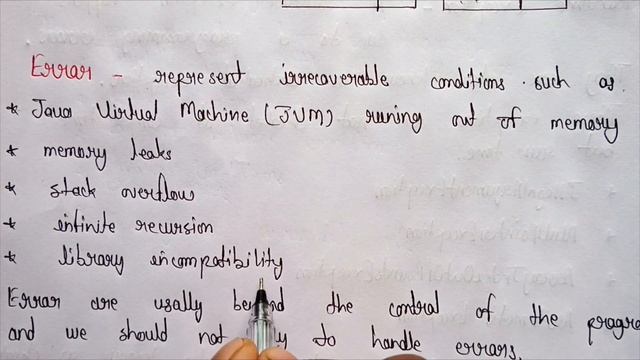 Errar - represent irrecoverable conditions such as
* Java Virtual Machine (JVM) runing out of memory
* memory leaks
* stack overflow
* infinite recursion
* library incompatibility
Errar are usally the control of the
and we should not to handle errars.